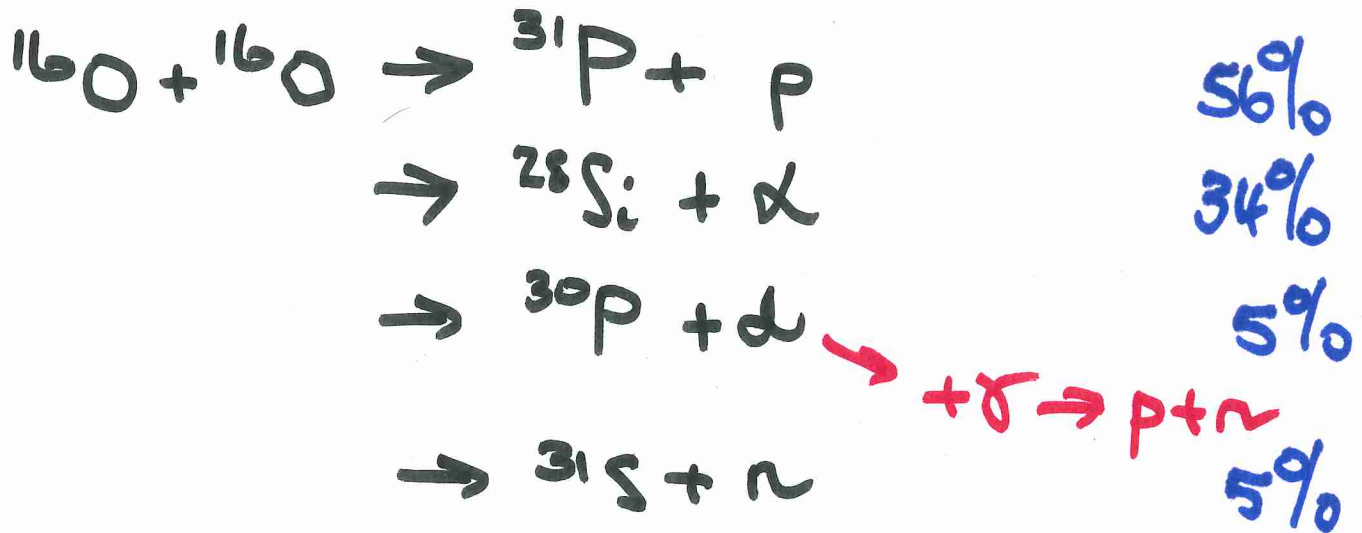 ¹⁶O + ¹⁶O → ³¹P + p 56%
→ ²⁸Si + α 34%
→ ³⁰P + d 5%
→ +γ → p + n
→ ³¹S + n 5%